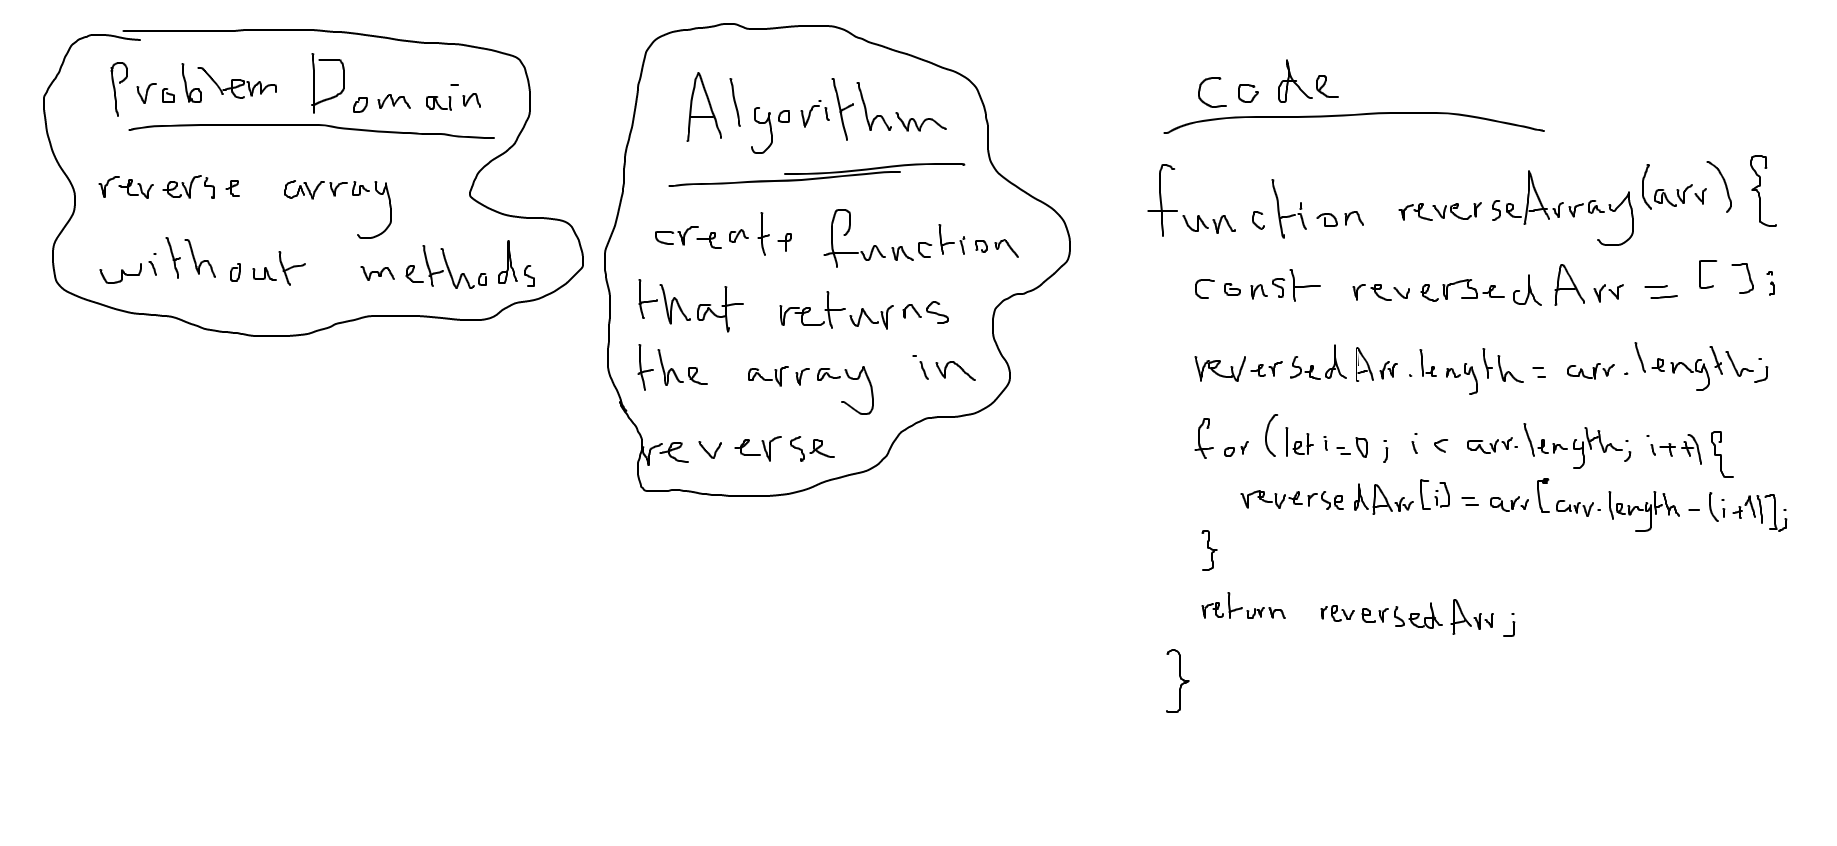 Problem Domain
reverse array
without methods
Algorithm
create function
that returns
the array in
reverse
code
function reverseArray(arr) {
const reversedArr = [];
reversedArr.length = arr.length;
for (let i=0; i < arr.length; i++) {
reversedArr[i] = arr[arr.length - (i+1)];
}
return reversedArr;
}